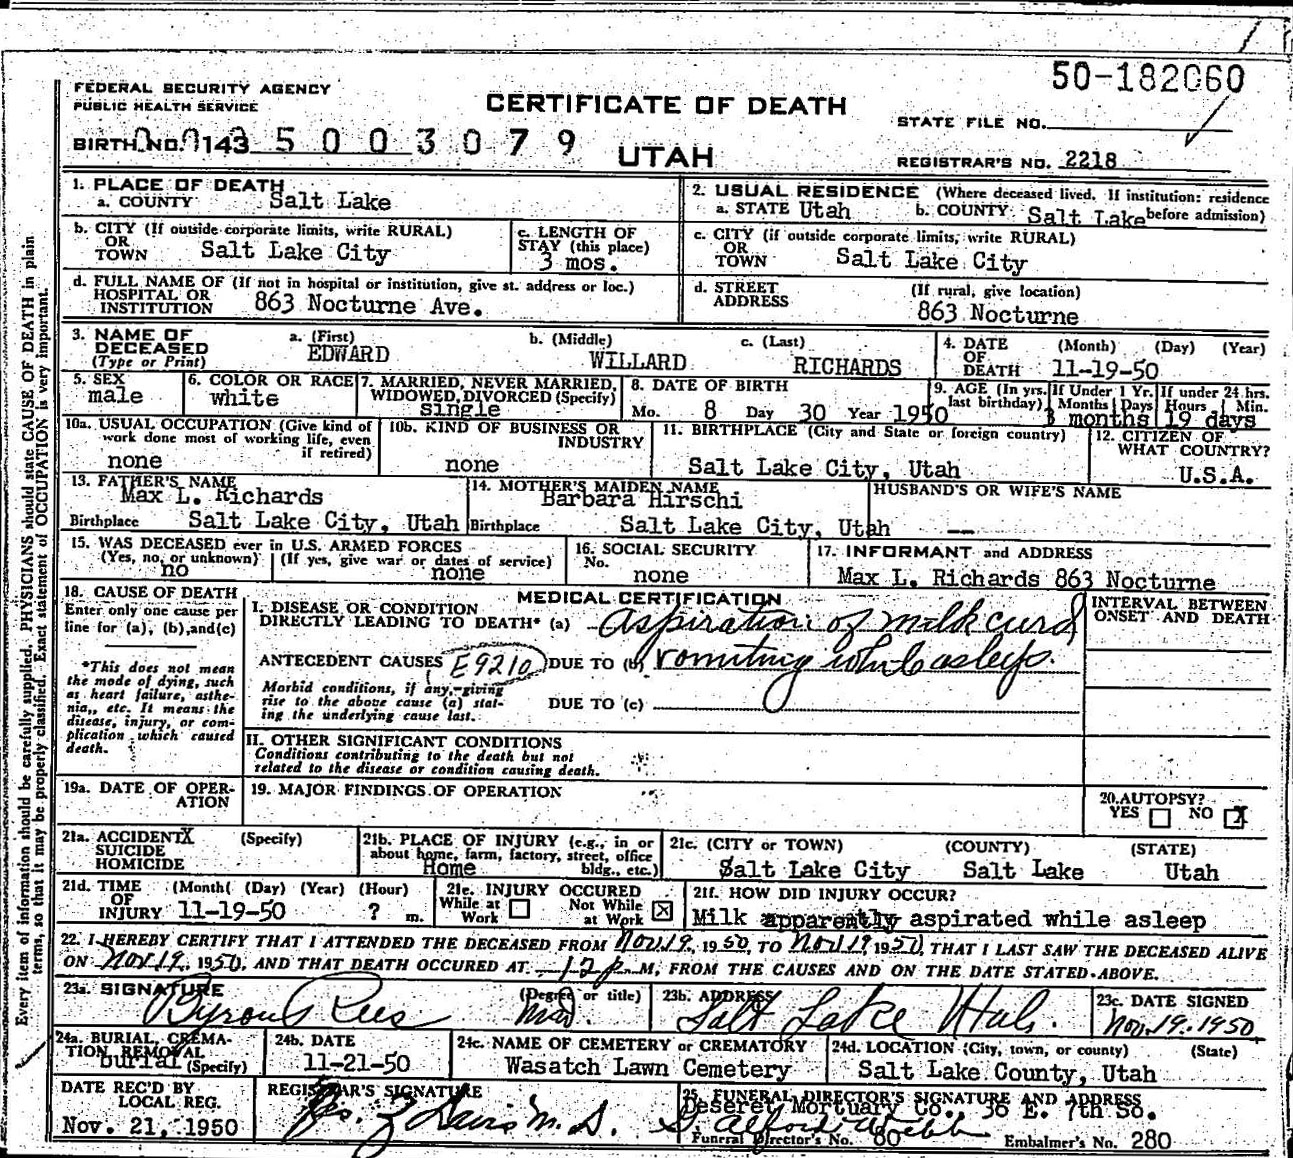 50-182060
FEDERAL SECURITY AGENCY
PUBLIC HEALTH SERVICE
CERTIFICATE OF DEATH
STATE FILE NO.
BIRTH NO. 143 5 0 0 3 0 7 9
UTAH
REGISTRAR'S NO. 2218
1. PLACE OF DEATH
a. COUNTY Salt Lake
2. USUAL RESIDENCE (Where deceased lived. If institution: residence
a. STATE Utah b. COUNTY Salt Lake before admission)
b. CITY (If outside corporate limits, write RURAL)
OR
TOWN Salt Lake City
c. LENGTH OF
STAY (this place)
3 mos.
c. CITY (if outside corporate limits, write RURAL)
OR
TOWN Salt Lake City
d. FULL NAME OF (If not in hospital or institution, give st. address or loc.)
HOSPITAL OR
INSTITUTION 863 Nocturne Ave.
d. STREET (If rural, give location)
ADDRESS 863 Nocturne
3. NAME OF
DECEASED
(Type or Print)
a. (First) b. (Middle) c. (Last)
EDWARD WILLARD RICHARDS
4. DATE (Month) (Day) (Year)
OF
DEATH 11-19-50
5. SEX
male
6. COLOR OR RACE
white
7. MARRIED, NEVER MARRIED,
WIDOWED, DIVORCED (Specify)
single
8. DATE OF BIRTH
Mo. 8 Day 30 Year 1950
9. AGE (In yrs. last birthday)
If Under 1 Yr. If under 24 hrs.
Months Days Hours Min.
3 months 19 days
10a. USUAL OCCUPATION (Give kind of
work done most of working life, even
if retired)
none
10b. KIND OF BUSINESS OR
INDUSTRY
none
11. BIRTHPLACE (City and State or foreign country)
Salt Lake City, Utah
12. CITIZEN OF
WHAT COUNTRY?
U.S.A.
13. FATHER'S NAME
Max L. Richards
Birthplace Salt Lake City, Utah
14. MOTHER'S MAIDEN NAME
Barbara Hirschi
Birthplace Salt Lake City, Utah
HUSBAND'S OR WIFE'S NAME
--
15. WAS DECEASED ever in U.S. ARMED FORCES
(Yes, no, or unknown) (If yes, give war or dates of service)
no none
16. SOCIAL SECURITY
No.
none
17. INFORMANT and ADDRESS
Max L. Richards 863 Nocturne
18. CAUSE OF DEATH
Enter only one cause per
line for (a), (b), and (c)
*This does not mean
the mode of dying, such
as heart failure, asthe-
nia,, etc. It means the
disease, injury, or com-
plication which caused
death.
MEDICAL CERTIFICATION
INTERVAL BETWEEN
ONSET AND DEATH
I. DISEASE OR CONDITION
DIRECTLY LEADING TO DEATH* (a) Aspiration of milk curd
ANTECEDENT CAUSES E9210 DUE TO (b) vomiting while asleep.
Morbid conditions, if any, giving
rise to the above cause (a) stat-
ing the underlying cause last.
DUE TO (c)
II. OTHER SIGNIFICANT CONDITIONS
Conditions contributing to the death but not
related to the disease or condition causing death.
19a. DATE OF OPER-
ATION
19. MAJOR FINDINGS OF OPERATION
20. AUTOPSY?
YES NO X
21a. ACCIDENT X (Specify)
SUICIDE
HOMICIDE
21b. PLACE OF INJURY (e.g., in or
about home, farm, factory, street, office
bldg., etc.)
Home
21c. (CITY or TOWN) (COUNTY) (STATE)
Salt Lake City Salt Lake Utah
21d. TIME (Month) (Day) (Year) (Hour)
OF
INJURY 11-19-50 ? m.
21e. INJURY OCCURED
While at Work Not While at Work X
21f. HOW DID INJURY OCCUR?
Milk apparently aspirated while asleep
22. I HEREBY CERTIFY THAT I ATTENDED THE DECEASED FROM Nov. 19, 1950, TO Nov 19 1950, THAT I LAST SAW THE DECEASED ALIVE
ON Nov 19, 1950, AND THAT DEATH OCCURED AT 12 p M., FROM THE CAUSES AND ON THE DATE STATED ABOVE.
23a. SIGNATURE (Degree or title)
Byron Rees M.D.
23b. ADDRESS
Salt Lake Utah.
23c. DATE SIGNED
Nov. 19. 1950
24a. BURIAL, CREMA-
TION REMOVAL
burial (Specify)
24b. DATE
11-21-50
24c. NAME OF CEMETERY or CREMATORY
Wasatch Lawn Cemetery
24d. LOCATION (City, town, or county) (State)
Salt Lake County, Utah
DATE REC'D BY
LOCAL REG.
Nov. 21, 1950
REGISTRAR'S SIGNATURE
M.D.
25. FUNERAL DIRECTOR'S SIGNATURE AND ADDRESS
Deseret Mortuary Co., 36 E. 7th So.
Funeral Director's No. 80 Embalmer's No. 280
Every item of information should be carefully supplied. PHYSICIANS should state CAUSE OF DEATH in plain
terms, so that it may be properly classified. Exact statement of OCCUPATION is very important.